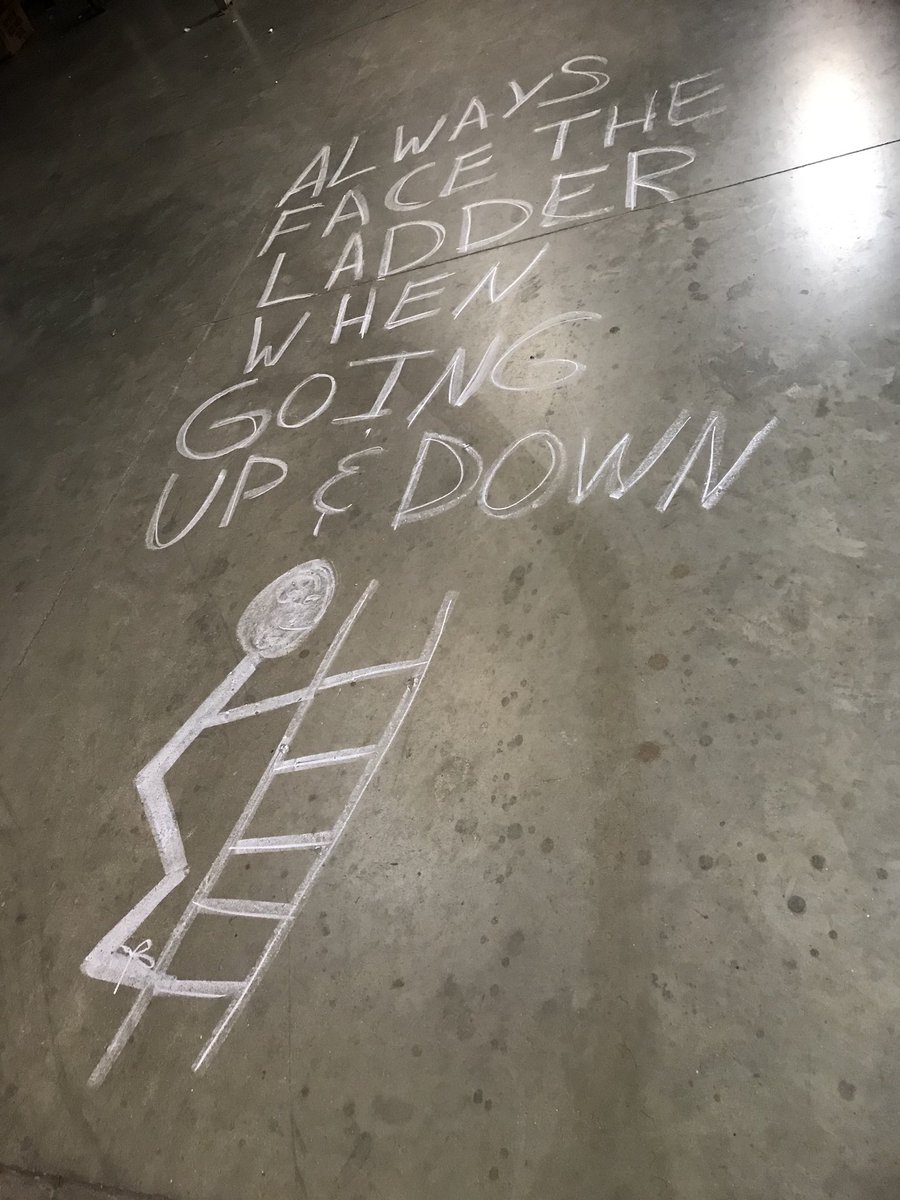 ALWAYS
FACE THE
LADDER
WHEN
GOING
UP & DOWN